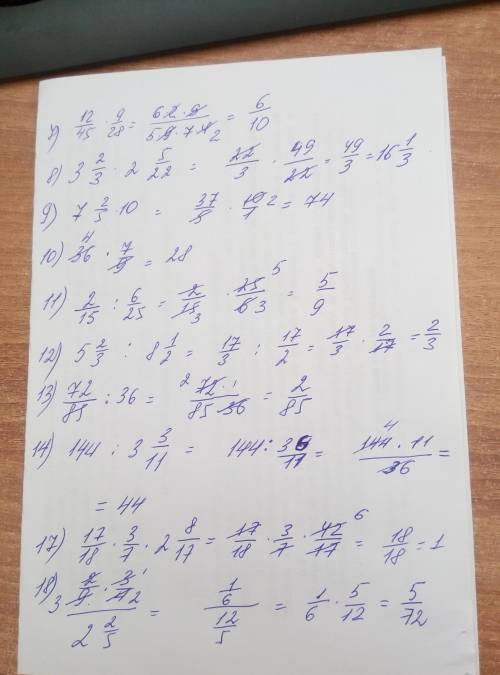 7) 12/45 · 9/28 = 6 12 · 9 / 5 9 · 7 4 2 = 6/10
8) 3 2/3 · 2 5/22 = 22/3 · 49/22 = 49/3 = 16 1/3
9) 7 2/5 · 10 = 37/5 · 10 2/1 = 74
10) 4 36 · 7/9 = 28
11) 2/15 : 6/25 = 2/15 3 · 25 5/6 3 = 5/9
12) 5 2/3 : 8 1/2 = 17/3 : 17/2 = 17/3 · 2/17 = 2/3
13) 72/85 : 36 = 2 72 · 1/85 · 36 = 2/85
14) 144 : 3 3/11 = 144 : 36/11 = 4 144 · 11/36 =
= 44
17) 17/18 · 3/7 · 2 8/17 = 17/18 · 3/7 · 42 6/17 = 18/18 = 1
18) 3 2/9 · 3 1/4 2 / 2 2/5 = 1/6 / 12/5 = 1/6 · 5/12 = 5/72